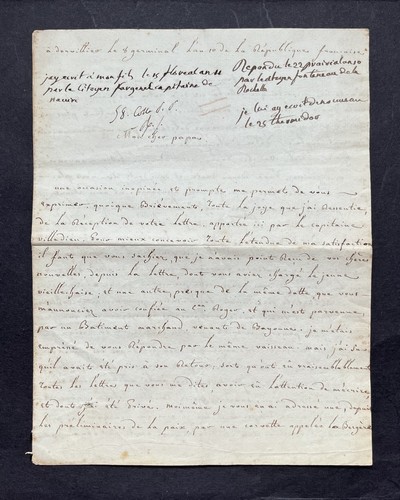 a demillier le 8 germinal l'an 10 de la République française
jay ecrit a mon fils le 15 floreal an 10
par le Citoyen fargeret capitaine de
Repondu le 22 prairial an 10
par le citoyen funteneau de la
Rochelle
je lui ay ecrit de nouveau
le 25 thermidor
Mon cher papa
une occasion inopinée et prompte me permets de vous
exprimer, quoique Brièvements, toute la joye que j'ai ressentie,
de la Réception de votre lettre, apportée ici par le capitaine
villedieu. Pour mieux concevoir toute l'etendue de ma satisfaction
il faut que vous sachiez, que je n'avais point Reçu de vos chères
nouvelles, depuis la lettre, dont vous aviez chargé le jeune
vieillechaise, et une autre, presque de la même datte, que vous
m'annonciez avoir confiée au Roger, et qui m'est parvenue,
par un Batiment marchand, venant de Bayonne. je m'étais
empressé de vous Répondre par le même vaisseau, mais j'ai su
qu'il avait été pris à son Retour, sont qu'ont eu vraisemblablement
toutes les lettres que vous me dites avoir eu l'attention de m'écrire
et dont j'ai été Privé. moimême je vous en ai adressé une, depuis
les préliminaires de la paix par une corvette appelée la Bergère